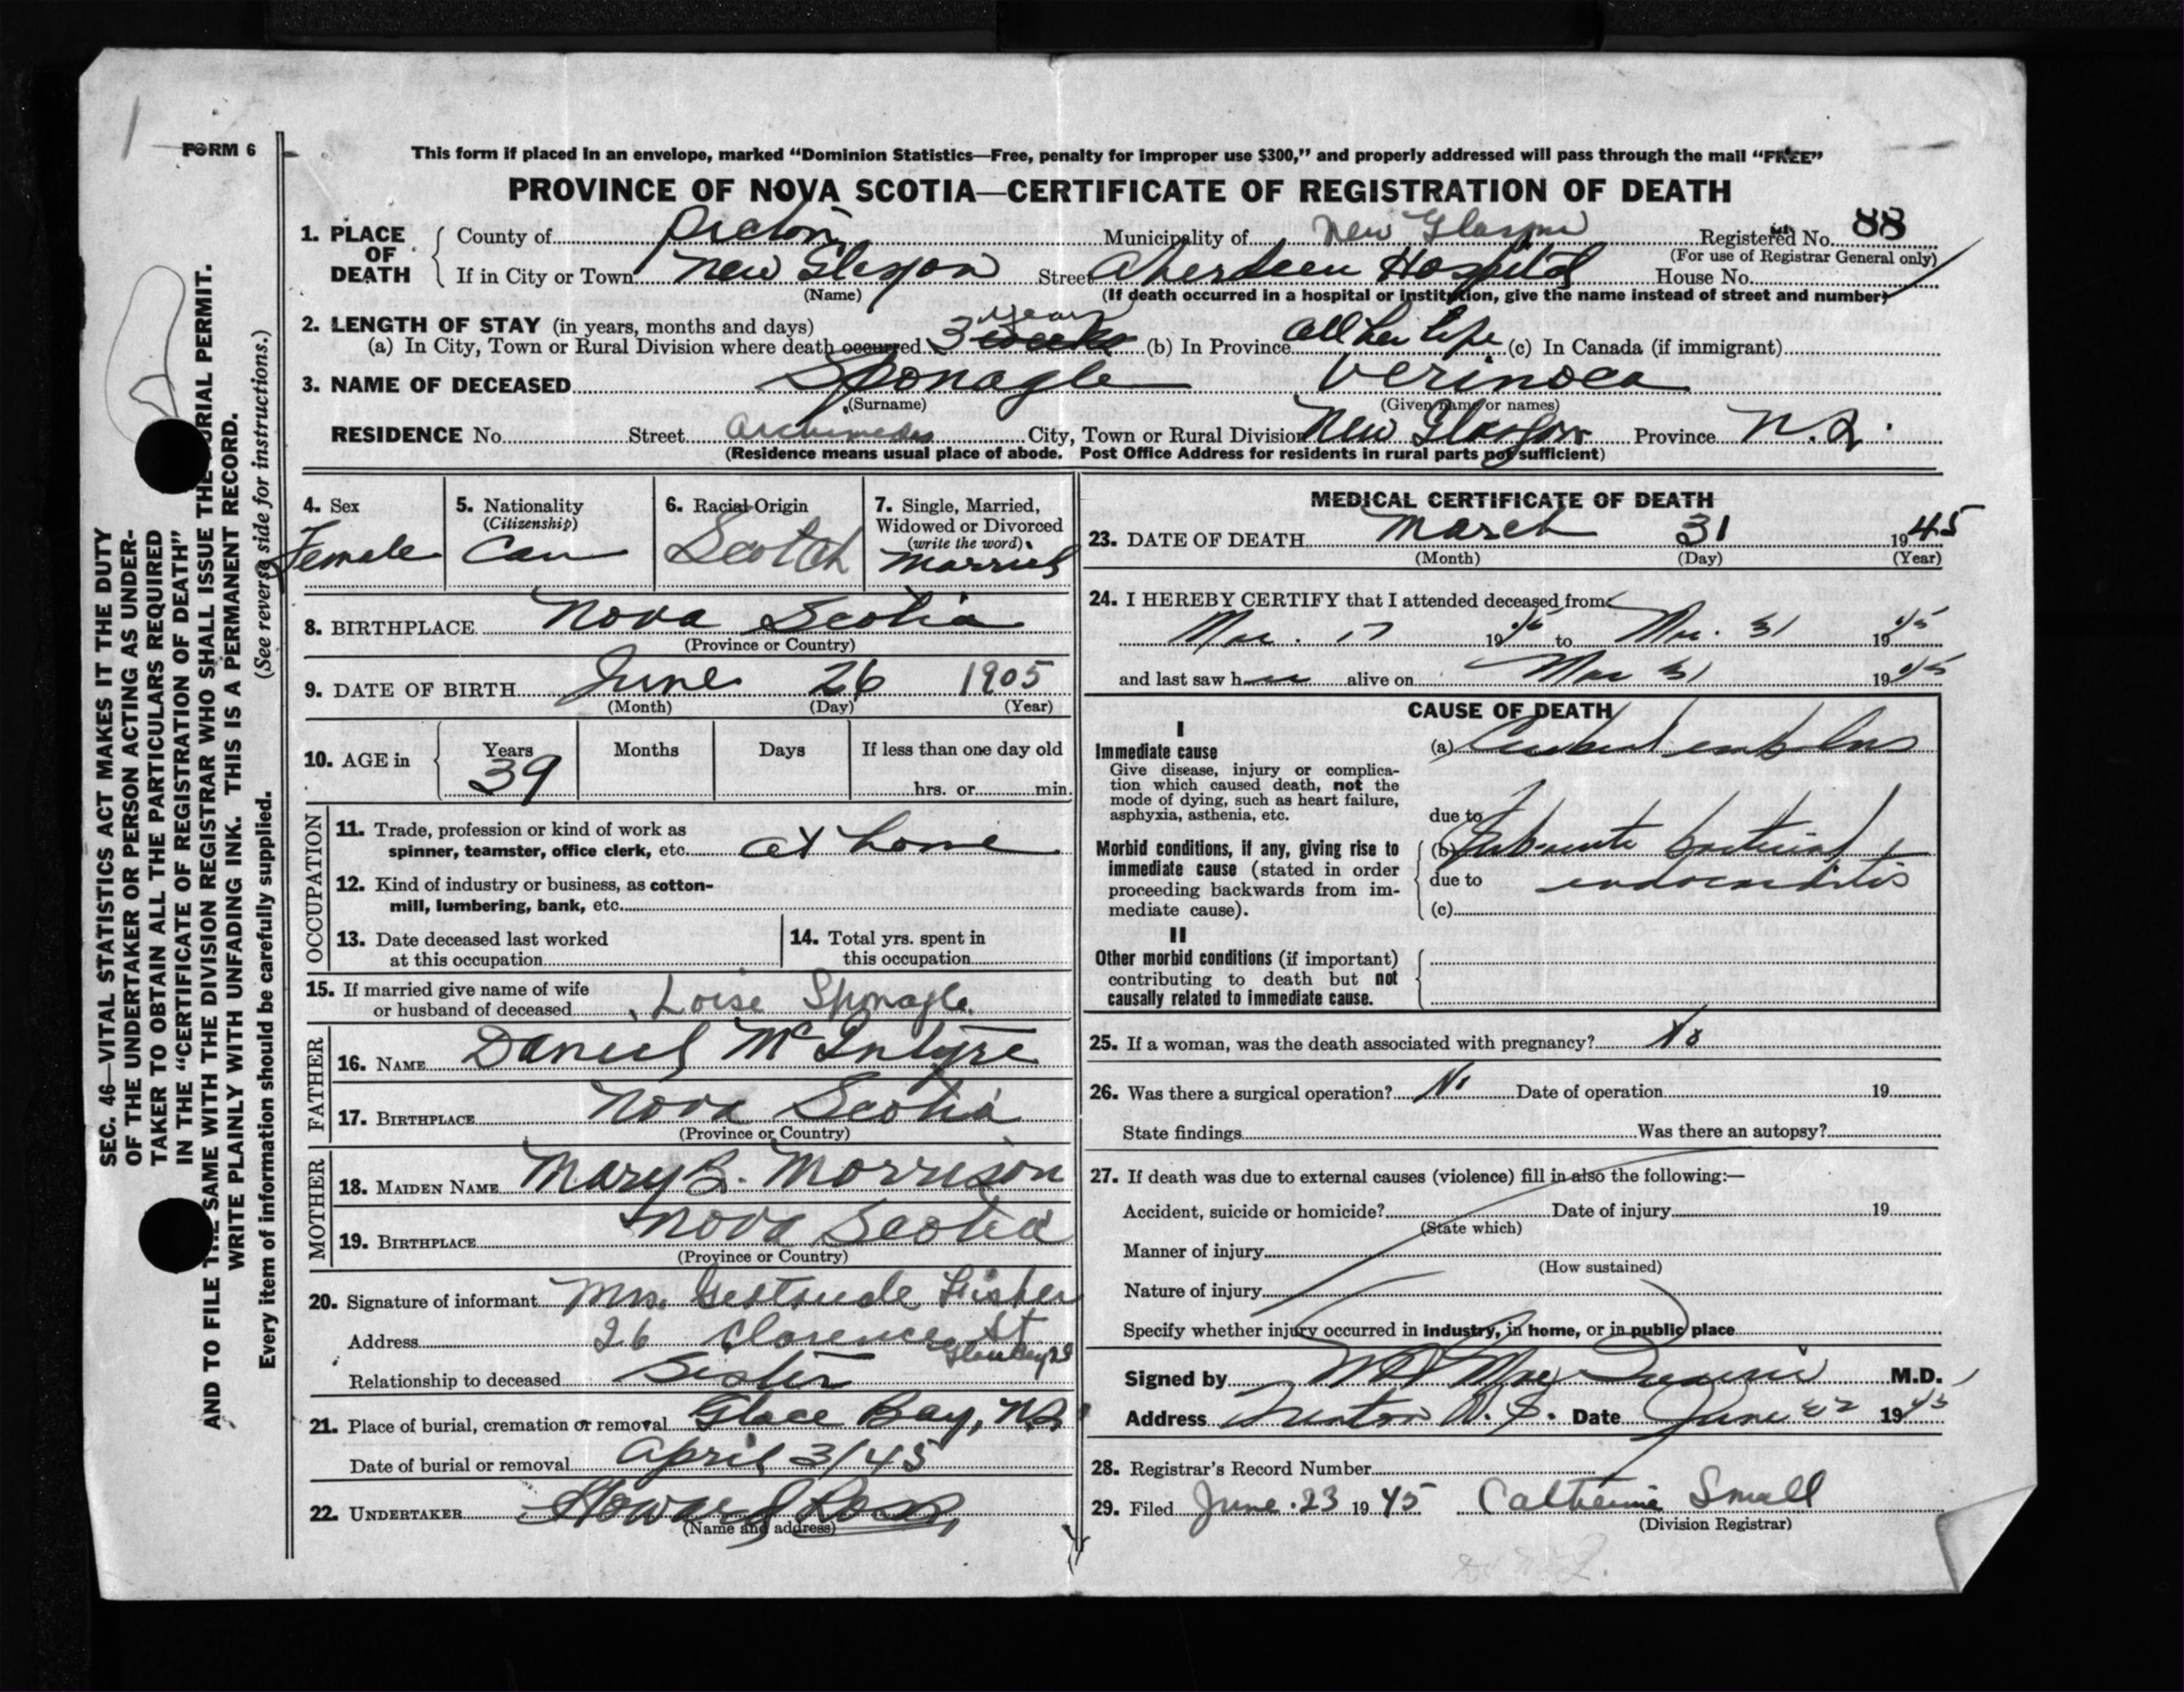 FORM 6
This form if placed in an envelope, marked "Dominion Statistics—Free, penalty for improper use $300," and properly addressed will pass through the mail "FREE"
PROVINCE OF NOVA SCOTIA—CERTIFICATE OF REGISTRATION OF DEATH
1. PLACE OF DEATH
County of Pictou Municipality of New Glasgow Registered No. 88
(For use of Registrar General only)
If in City or Town New Glasgow Street Aberdeen Hospital House No.
(Name) (If death occurred in a hospital or institution, give the name instead of street and number)
2. LENGTH OF STAY (in years, months and days)
years
(a) In City, Town or Rural Division where death occurred 3 weeks (b) In Province all her life (c) In Canada (if immigrant)
3. NAME OF DECEASED Sponagle Verinoca
(Surname) (Given name or names)
RESIDENCE No. Street Archimedes City, Town or Rural Division New Glasgow Province N.S.
(Residence means usual place of abode. Post Office Address for residents in rural parts not sufficient)
4. Sex
Female
5. Nationality
(Citizenship)
Can
6. Racial Origin
Scotch
7. Single, Married,
Widowed or Divorced
(write the word)
Married
8. BIRTHPLACE Nova Scotia
(Province or Country)
9. DATE OF BIRTH June 26 1905
(Month) (Day) (Year)
10. AGE in Years Months Days If less than one day old
39 hrs. or min.
OCCUPATION
11. Trade, profession or kind of work as
spinner, teamster, office clerk, etc. at home
12. Kind of industry or business, as cotton-
mill, lumbering, bank, etc.
13. Date deceased last worked
at this occupation
14. Total yrs. spent in
this occupation
15. If married give name of wife
or husband of deceased Loise Sponagle
FATHER
16. NAME Daniel McIntyre
17. BIRTHPLACE Nova Scotia
(Province or Country)
MOTHER
18. MAIDEN NAME Mary B. Morrison
19. BIRTHPLACE Nova Scotia
(Province or Country)
20. Signature of informant Mrs. Gertrude Fisher
Address 26 Clarence St
Glace Bay NS
Relationship to deceased Sister
21. Place of burial, cremation or removal Glace Bay, N.S.
Date of burial or removal April 3/45
22. UNDERTAKER Howard Ross
(Name and address)
MEDICAL CERTIFICATE OF DEATH
23. DATE OF DEATH March 31 1945
(Month) (Day) (Year)
24. I HEREBY CERTIFY that I attended deceased from
Mar. 17 1945 to Mar. 31 1945
and last saw her alive on Mar 31 1945
CAUSE OF DEATH
I
Immediate cause
Give disease, injury or complica-
tion which caused death, not the
mode of dying, such as heart failure,
asphyxia, asthenia, etc.
(a) Cerebral embolus
due to
Morbid conditions, if any, giving rise to
immediate cause (stated in order
proceeding backwards from im-
mediate cause).
(b) Subacute bacterial
due to endocarditis
(c)
II
Other morbid conditions (if important)
contributing to death but not
causally related to immediate cause.
25. If a woman, was the death associated with pregnancy? No
26. Was there a surgical operation? No Date of operation 19
State findings Was there an autopsy?
27. If death was due to external causes (violence) fill in also the following:—
Accident, suicide or homicide? Date of injury 19
(State which)
Manner of injury
(How sustained)
Nature of injury
Specify whether injury occurred in industry, in home, or in public place
Signed by M.D.
Address Trenton N.S. Date June 22 1945
28. Registrar's Record Number
29. Filed June 23 1945 Catherine Small
(Division Registrar)
SEC. 46—VITAL STATISTICS ACT MAKES IT THE DUTY
OF THE UNDERTAKER OR PERSON ACTING AS UNDER-
TAKER TO OBTAIN ALL THE PARTICULARS REQUIRED
IN THE "CERTIFICATE OF REGISTRATION OF DEATH"
AND TO FILE THE SAME WITH THE DIVISION REGISTRAR WHO SHALL ISSUE THE BURIAL PERMIT.
WRITE PLAINLY WITH UNFADING INK. THIS IS A PERMANENT RECORD.
Every item of information should be carefully supplied. (See reverse side for instructions.)